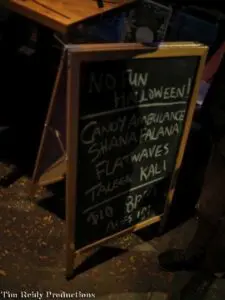 NO FUN
HALLOWEEN!
CANDY AMBULANCE
SHANA FALANA
FLATWAVES
TALEEN KALI
$10
AGES 18+
Tim Reidy Productions